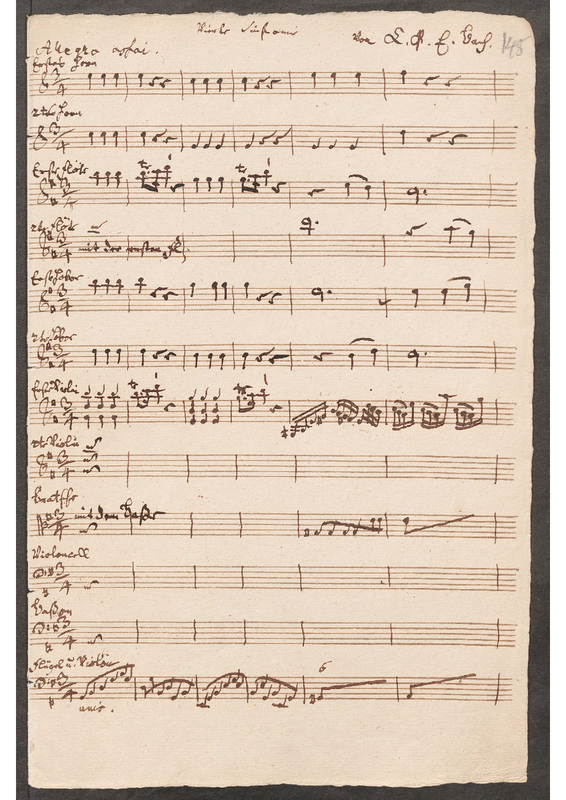 Vierte Sinfonie
Von C. P. E. Bach.
148
Allegro assai.
Erstes Horn
2tes Horn
Erste Flöte
tr
tr
2te Flöte
mit der ersten Fl.
Erste Hoboe
2te Hoboe
Erste Violin
tr
tr
2te Violin
Bratsche
mit dem Baße
Violoncell
Baßon
Flügel u. Violon
6
unis.